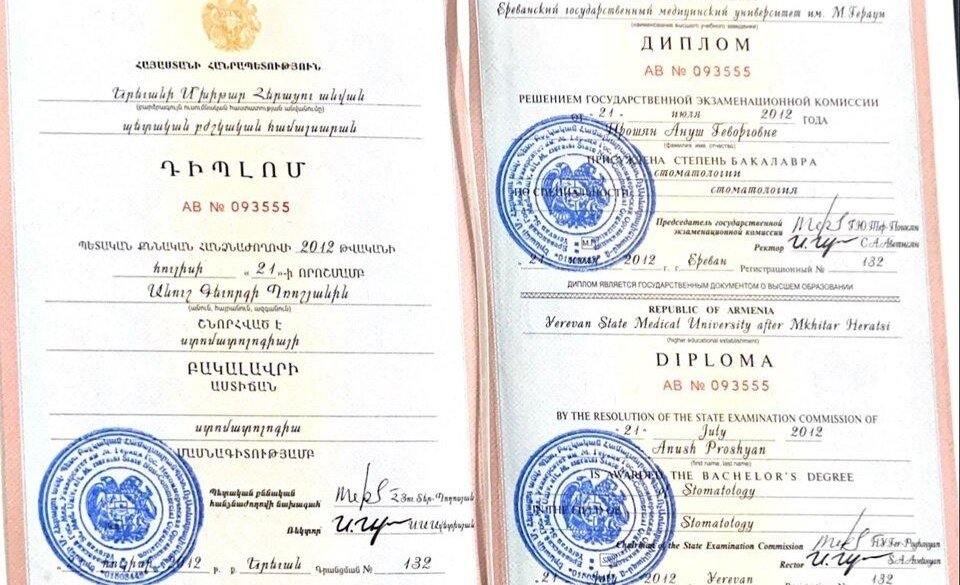 ՀԱՅԱՍՏԱՆԻ ՀԱՆՐԱՊԵՏՈՒԹՅՈՒՆ
Երևանի Մխիթար Հերացու անվան
(բարձրագույն ուսումնական հաստատության անվանումը)
պետական բժշկական համալսարան
ԴԻՊԼՈՄ
AB № 093555
ՊԵՏԱԿԱՆ ՔՆՆԱԿԱՆ ՀԱՆՁՆԱԺՈՂՈՎԻ 2012 ԹՎԱԿԱՆԻ
հուլիսի « 21 »-Ի ՈՐՈՇՄԱՄԲ
Անուշ Գևորգի Պռոշյանին
(անուն, հայրանուն, ազգանուն)
ՇՆՈՐՀՎԱԾ Է
ստոմատոլոգիայի
ԲԱԿԱԼԱՎՐԻ
ԱՍՏԻՃԱՆ
ստոմատոլոգիա
ՄԱՍՆԱԳԻՏՈՒԹՅԱՄԲ
Պետական քննական
հանձնաժողովի նախագահ
Ռեկտոր
հուլիսի 2012 թ. ք. Երևան Գրանցման № 132
Ереванский государственный медицинский университет им. М. Гераци
(наименование высшего учебного заведения)
ДИПЛОМ
AB № 093555
РЕШЕНИЕМ ГОСУДАРСТВЕННОЙ ЭКЗАМЕНАЦИОННОЙ КОМИССИИ
ОТ 21 июля 2012 ГОДА
Прошян Ануш Геворговне
(фамилия, имя, отчество)
ПРИСУЖДЕНА СТЕПЕНЬ БАКАЛАВРА
стоматологии
ПО СПЕЦИАЛЬНОСТИ стоматология
Председатель государственной
экзаменационной комиссии
Ректор С.А.Аветисян
" 21 " 2012 г. г. Ереван Регистрационный № 132
ДИПЛОМ ЯВЛЯЕТСЯ ГОСУДАРСТВЕННЫМ ДОКУМЕНТОМ О ВЫСШЕМ ОБРАЗОВАНИИ
REPUBLIC OF ARMENIA
Yerevan State Medical University after Mkhitar Heratsi
(higher educational establishment)
DIPLOMA
AB № 093555
BY THE RESOLUTION OF THE STATE EXAMINATION COMMISSION OF
21 July 2012
Anush Proshyan
(first name, last name)
IS AWARDED THE BACHELOR'S DEGREE
Stomatology
IN THE FIELD OF
Stomatology
Chairman of the State Examination Commission
Rector S.A.Avetisyan
21 2012 Yerevan 132